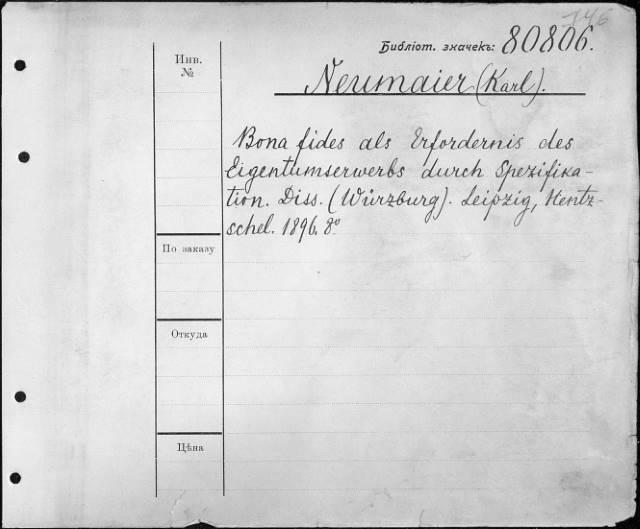 746
Библіот. значекъ: 80806.
Инв.
№
Neumaier (Karl).
Bona fides als Erfordernis des
Eigentumserwerbs durch Spezifika-
tion. Diss. (Würzburg). Leipzig, Hentz-
schel. 1896. 8°
По заказу
Откуда
Цѣна